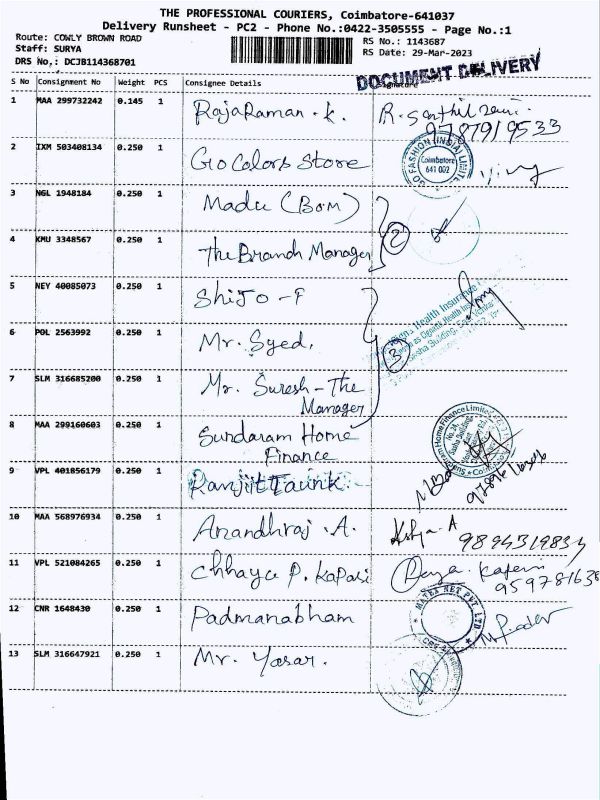 THE PROFESSIONAL COURIERS, Coimbatore-641037
Delivery Runsheet - PC2 - Phone No.:0422-3505555 - Page No.:1
Route: COWLY BROWN ROAD
RS No.: 1143687
Staff: SURYA
RS Date: 29-Mar-2023
DRS No.: DCJB114368701
DOCUMENT DELIVERY
S No Consignment No Weight PCS Consignee Details Signature
1 MAA 299732242 0.145 1 RajaRaman.K. R.
9787919533
2 IXM 503408134 0.250 1 Go Colors Store
GO FASHION (INDIA) LIMITED
Coimbatore
641 002
3 NGL 1948184 0.250 1 Madu (Bom)
4 KMU 3348567 0.250 1 The Branch Manager 2
5 NEY 40085073 0.250 1 Shijo - F
Health Insurance
6 POL 2563992 0.250 1 Mr. Syed.
3
7 SLM 316685200 0.250 1 Mr. Suresh - The
Manager
8 MAA 299160603 0.250 1 Sundaram Home
Finance
Sundaram Home Finance Limited
9 VPL 401856179 0.250 1
10 MAA 568976934 0.250 1 Anandhraj .A.
11 VPL 521084265 0.250 1 Chhaya P. Kapasi
12 CNR 1648430 0.250 1 Padmanabham
NET PVT LTD
13 SLM 316647921 0.250 1 Mr. Yasar.